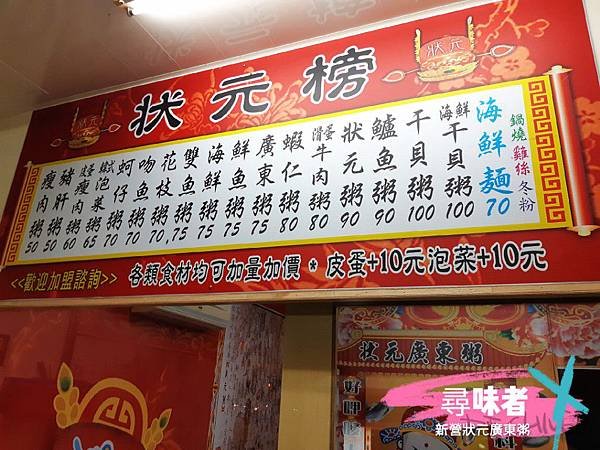 狀元榜
狀元
狀元
瘦肉粥50
豬肝粥50
皮蛋瘦肉粥60
韓式泡菜粥65
蚵仔粥70
吻魚粥70
花枝粥75
雙魚粥75
海鮮粥75
鮮魚粥75
廣東粥75
蝦仁粥80
滑蛋牛肉粥80
狀元粥90
鱸魚粥90
干貝粥100
海鮮干貝粥100
海鮮麵70
鍋燒雞絲冬粉
<<歡迎加盟諮詢>>
各類食材均可加量加價*皮蛋+10元泡菜+10元
狀元廣東粥
尋味者
新營狀元廣東粥